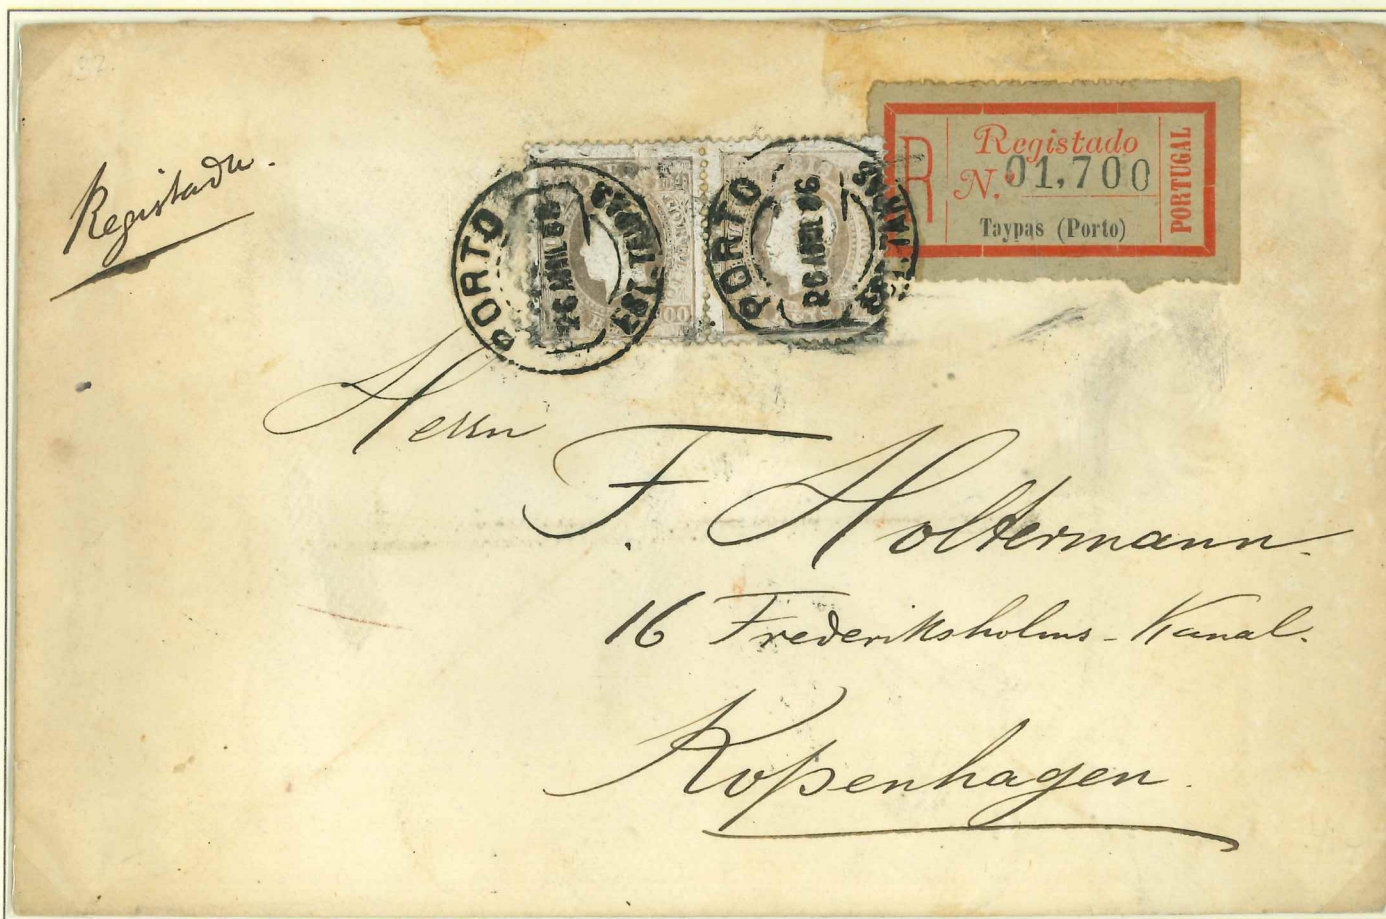 Registado.
R
Registado
N.º 01,700
Taypas (Porto)
PORTUGAL
PORTO
26 ABRIL 86
EST. TAIPAS
PORTO
26 ABRIL 86
EST. TAIPAS
Herrn
F. Holtermann.
16 Frederiksholms-Kanal.
Kopenhagen.